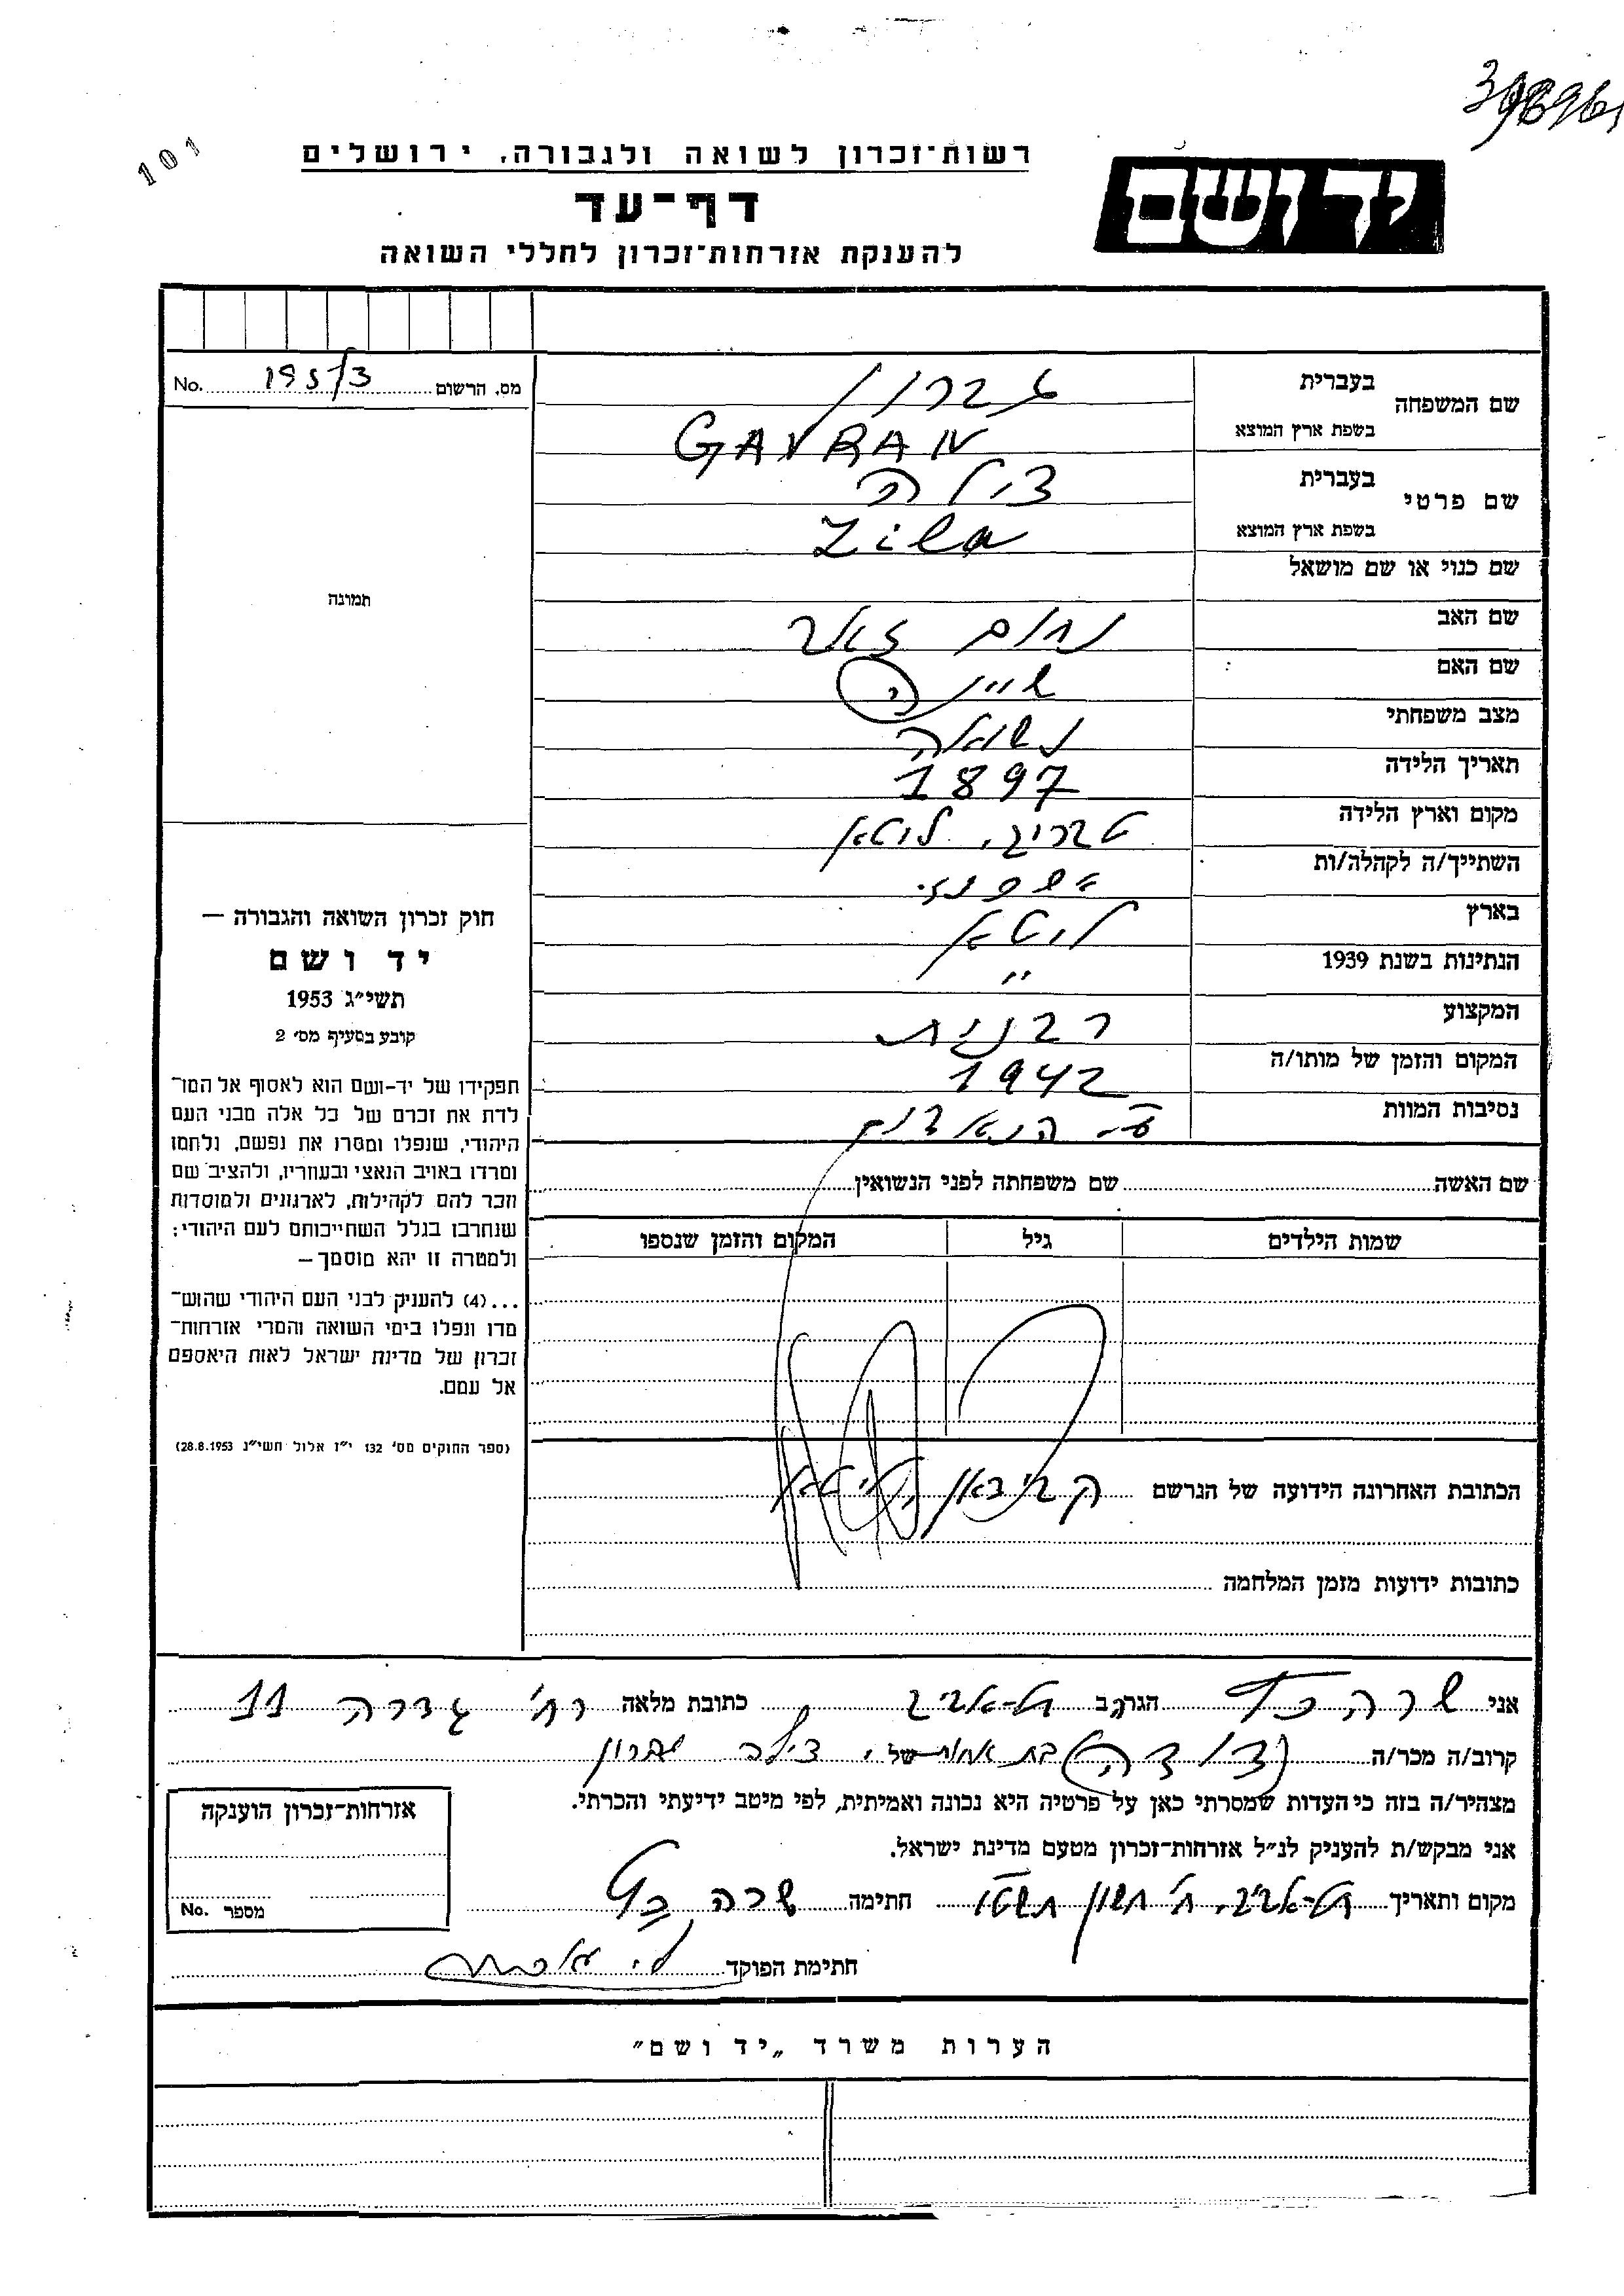 101
רשות־זכרון לשואה ולגבורה, ירושלים
יד ושם
דף־עד
להענקת אזרחות־זכרון לחללי השואה
מס. הרשום 195/3 No.
שם המשפחה בעברית גברון
בשפת ארץ המוצא GAVRAN
שם פרטי בעברית צילה
בשפת ארץ המוצא Zila
שם כנוי או שם מושאל
שם האב נחום זאב
שם האם
מצב משפחתי נשואה
תאריך הלידה 1897
מקום וארץ הלידה טבריג, ליטא
השתייך/ה לקהלה/ות אשכנזי
בארץ ליטא
הנתינות בשנת 1939 "
המקצוע רבנית
המקום והזמן של מותו/ה 1942
נסיבות המוות ע"י הנאצים
שם האשה שם משפחתה לפני הנשואין
שמות הילדים גיל המקום והזמן שנספו
הכתובת האחרונה הידועה של הנרשם ליטא
כתובות ידועות מזמן המלחמה
תמונה
חוק זכרון השואה והגבורה —
יד ושם
תשי״ג 1953
קובע בסעיף מס׳ 2
תפקידו של יד-ושם הוא לאסוף אל המו־
לדת את זכרם של כל אלה מבני העם
היהודי, שנפלו ומסרו את נפשם, נלחמו
ומרדו באויב הנאצי ובעוזריו, ולהציב שם
וזכר להם לקהילות, לארגונים ולמוסדות
שנחרבו בגלל השתייכותם לעם היהודי;
ולמטרה זו יהא מוסמך—
...(4) להעניק לבני העם היהודי שהוש־
מדו ונפלו בימי השואה והמרי אזרחות־
זכרון של מדינת ישראל לאות היאספם
אל עמם.
(ספר החוקים מס׳ 132 י״ז אלול תשי״ג 28.8.1953)
אני שרה הגר/ה ב תל-אביב כתובת מלאה רח' גדרה 11
קרוב/ה מכר/ה (דודה) בת אחות של צילה גברון
מצהיר/ה בזה כי העדות שמסרתי כאן על פרטיה היא נכונה ואמיתית, לפי מיטב ידיעתי והכרתי.
אני מבקש/ת להעניק לנ״ל אזרחות־זכרון מטעם מדינת ישראל.
מקום ותאריך תל-אביב, ח' חשון תשט"ו חתימה שרה
חתימת הפוקד
אזרחות־זכרון הוענקה
מספר No.
הערות משרד „יד ושם״